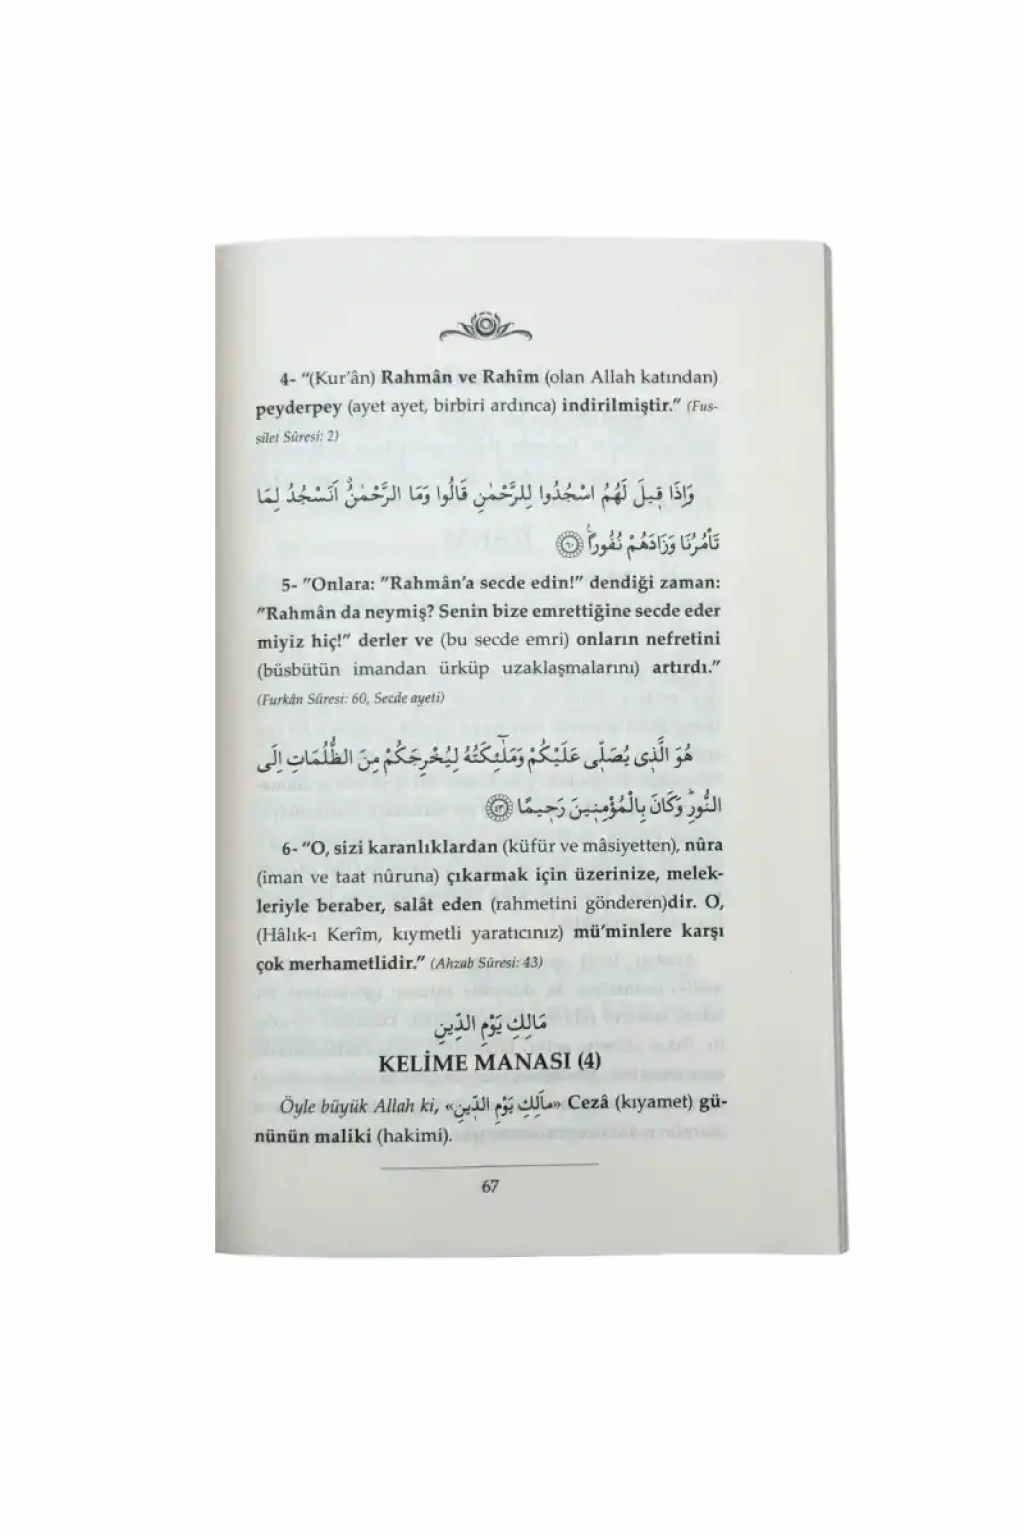 4- "(Kur'ân) Rahmân ve Rahîm (olan Allah katından)
peyderpey (ayet ayet, birbiri ardınca) indirilmiştir." (Fus-
silet Sûresi: 2)
وَاِذَا ق۪يلَ لَهُمُ اسْجُدُوا لِلرَّحْمٰنِ قَالُوا وَمَا الرَّحْمٰنُۗ اَنَسْجُدُ لِمَا
تَأْمُرُنَا وَزَادَهُمْ نُفُوراً۟ ﴿٦٠﴾
5- "Onlara: "Rahmân'a secde edin!" dendiği zaman:
"Rahmân da neymiş? Senin bize emrettiğine secde eder
miyiz hiç!" derler ve (bu secde emri) onların nefretini
(büsbütün imandan ürküp uzaklaşmalarını) artırdı."
(Furkân Sûresi: 60, Secde ayeti)
هُوَ الَّذ۪ي يُصَلّ۪ي عَلَيْكُمْ وَمَلٰٓئِكَتُهُ لِيُخْرِجَكُمْ مِنَ الظُّلُمَاتِ اِلَى
النُّورِۜ وَكَانَ بِالْمُؤْمِن۪ينَ رَح۪يمًا ﴿٤٣﴾
6- "O, sizi karanlıklardan (küfür ve mâsiyetten), nûra
(iman ve taat nûruna) çıkarmak için üzerinize, melek-
leriyle beraber, salât eden (rahmetini gönderen)dir. O,
(Hâlık-ı Kerîm, kıymetli yaratıcınız) mü'minlere karşı
çok merhametlidir." (Ahzab Sûresi: 43)
مَالِكِ يَوْمِ الدِّينِ
KELİME MANASI (4)
Öyle büyük Allah ki, «مَالِكِ يَوْمِ الدّ۪ينِ» Cezâ (kıyamet) gü-
nünün maliki (hakimi).
67